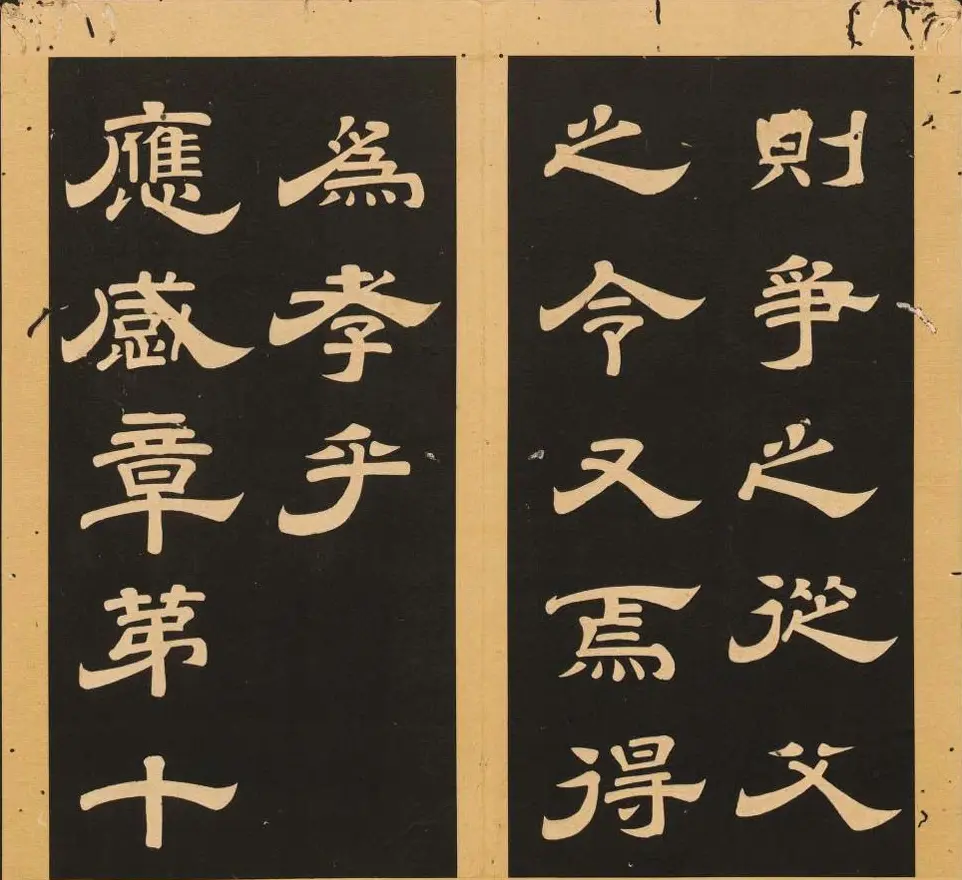 則爭之從父
之令又焉得
為孝乎
應感章第十